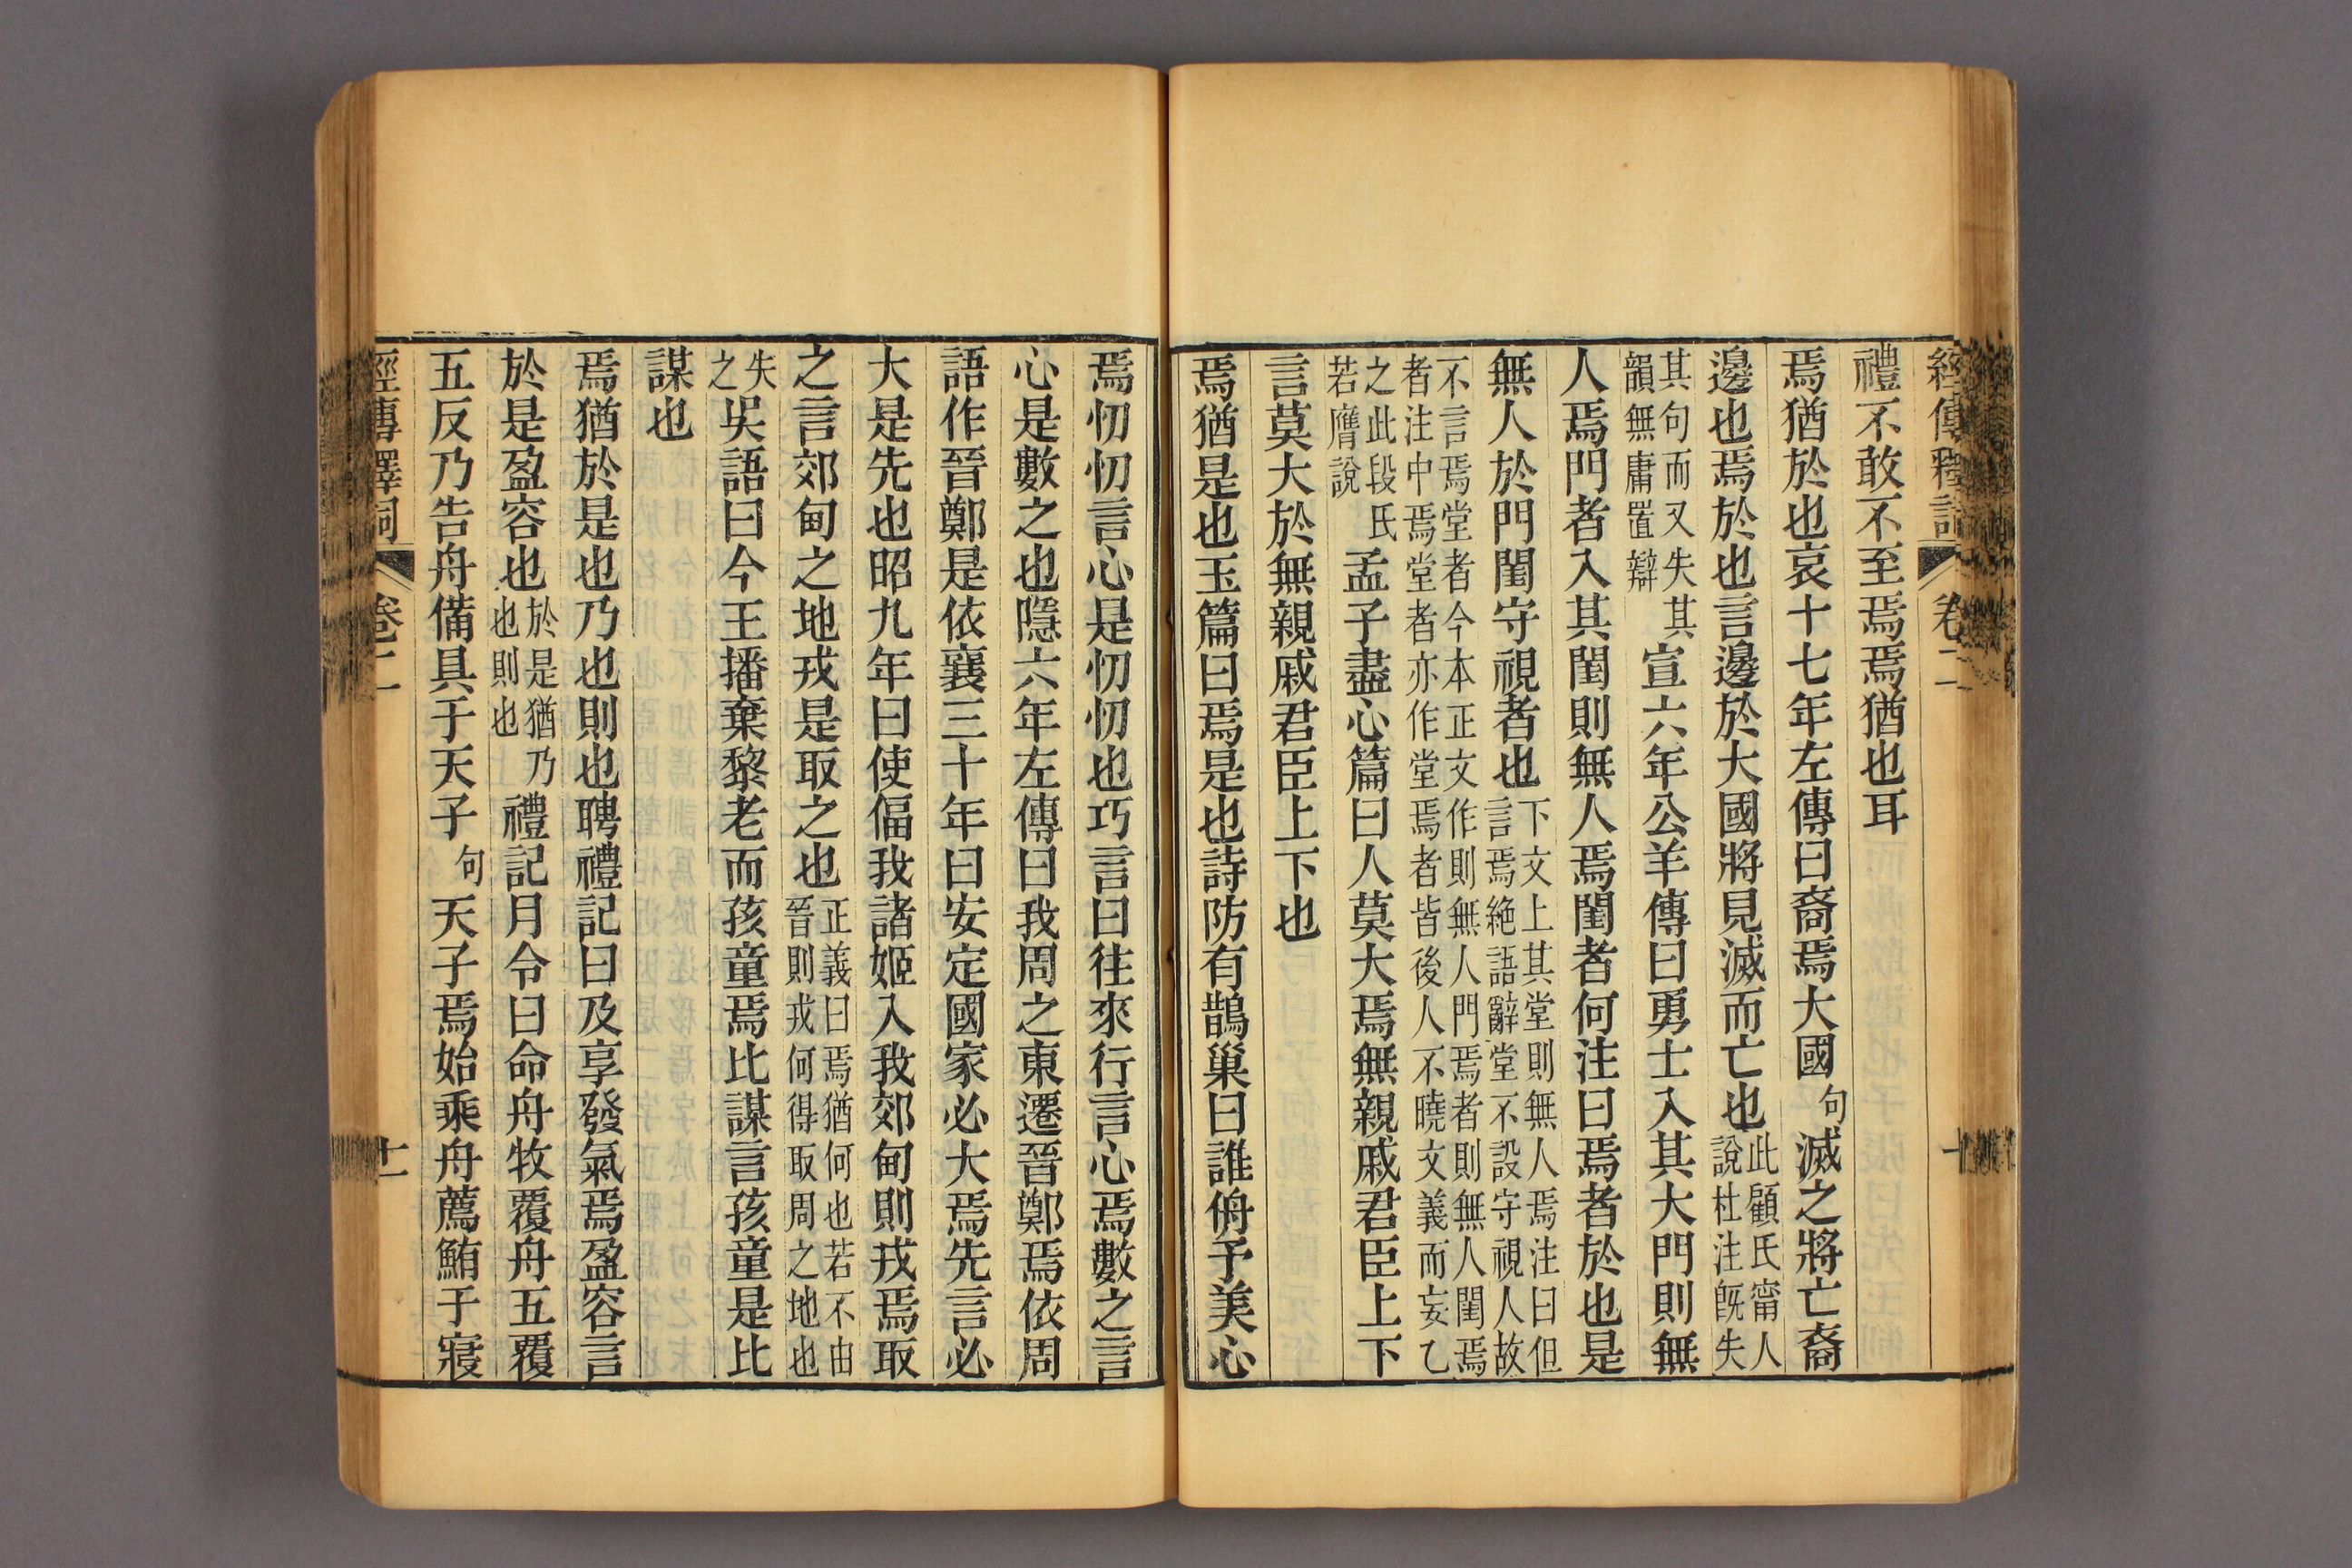 經傳釋詞 卷二 十
禮不敢不至焉焉猶也耳
焉猶於也哀十七年左傳曰裔焉大國句滅之將亡裔
邊也焉於也言邊於大國將見滅而亡也此顧氏甯人說杜注旣失
其句而又失其韻無庸置辯宣六年公羊傳曰勇士入其大門則無
人焉門者入其閨則無人焉閨者何注曰焉者於也是
無人於門閨守視者也下文上其堂則無人焉注曰但言焉絶語辭堂不設守視人故
不言焉堂者今本正文作則無人門焉者則無人閨焉者注中焉堂者亦作堂焉者皆後人不曉文義而妄乙
之此段氏若膺說孟子盡心篇曰人莫大焉無親戚君臣上下
言莫大於無親戚君臣上下也
焉猶是也玉篇曰焉是也詩防有鵲巢曰誰侜予美心
焉忉忉言心是忉忉也巧言曰往來行言心焉數之言
心是數之也隱六年左傳曰我周之東遷晉鄭焉依周
語作晉鄭是依襄三十年曰安定國家必大焉先言必
大是先也昭九年曰使偪我諸姬入我郊甸則戎焉取
之言郊甸之地戎是取之也正義曰焉猶何也若不由晉則戎何得取周之地也
失之吳語曰今王播棄黎老而孩童焉比謀言孩童是比
謀也
焉猶於是也乃也則也聘禮記曰及享發氣焉盈容言
於是盈容也於是猶乃也則也禮記月令曰命舟牧覆舟五覆
五反乃告舟備具于天子句天子焉始乘舟薦鮪于寢
經傳釋詞 卷二 十一